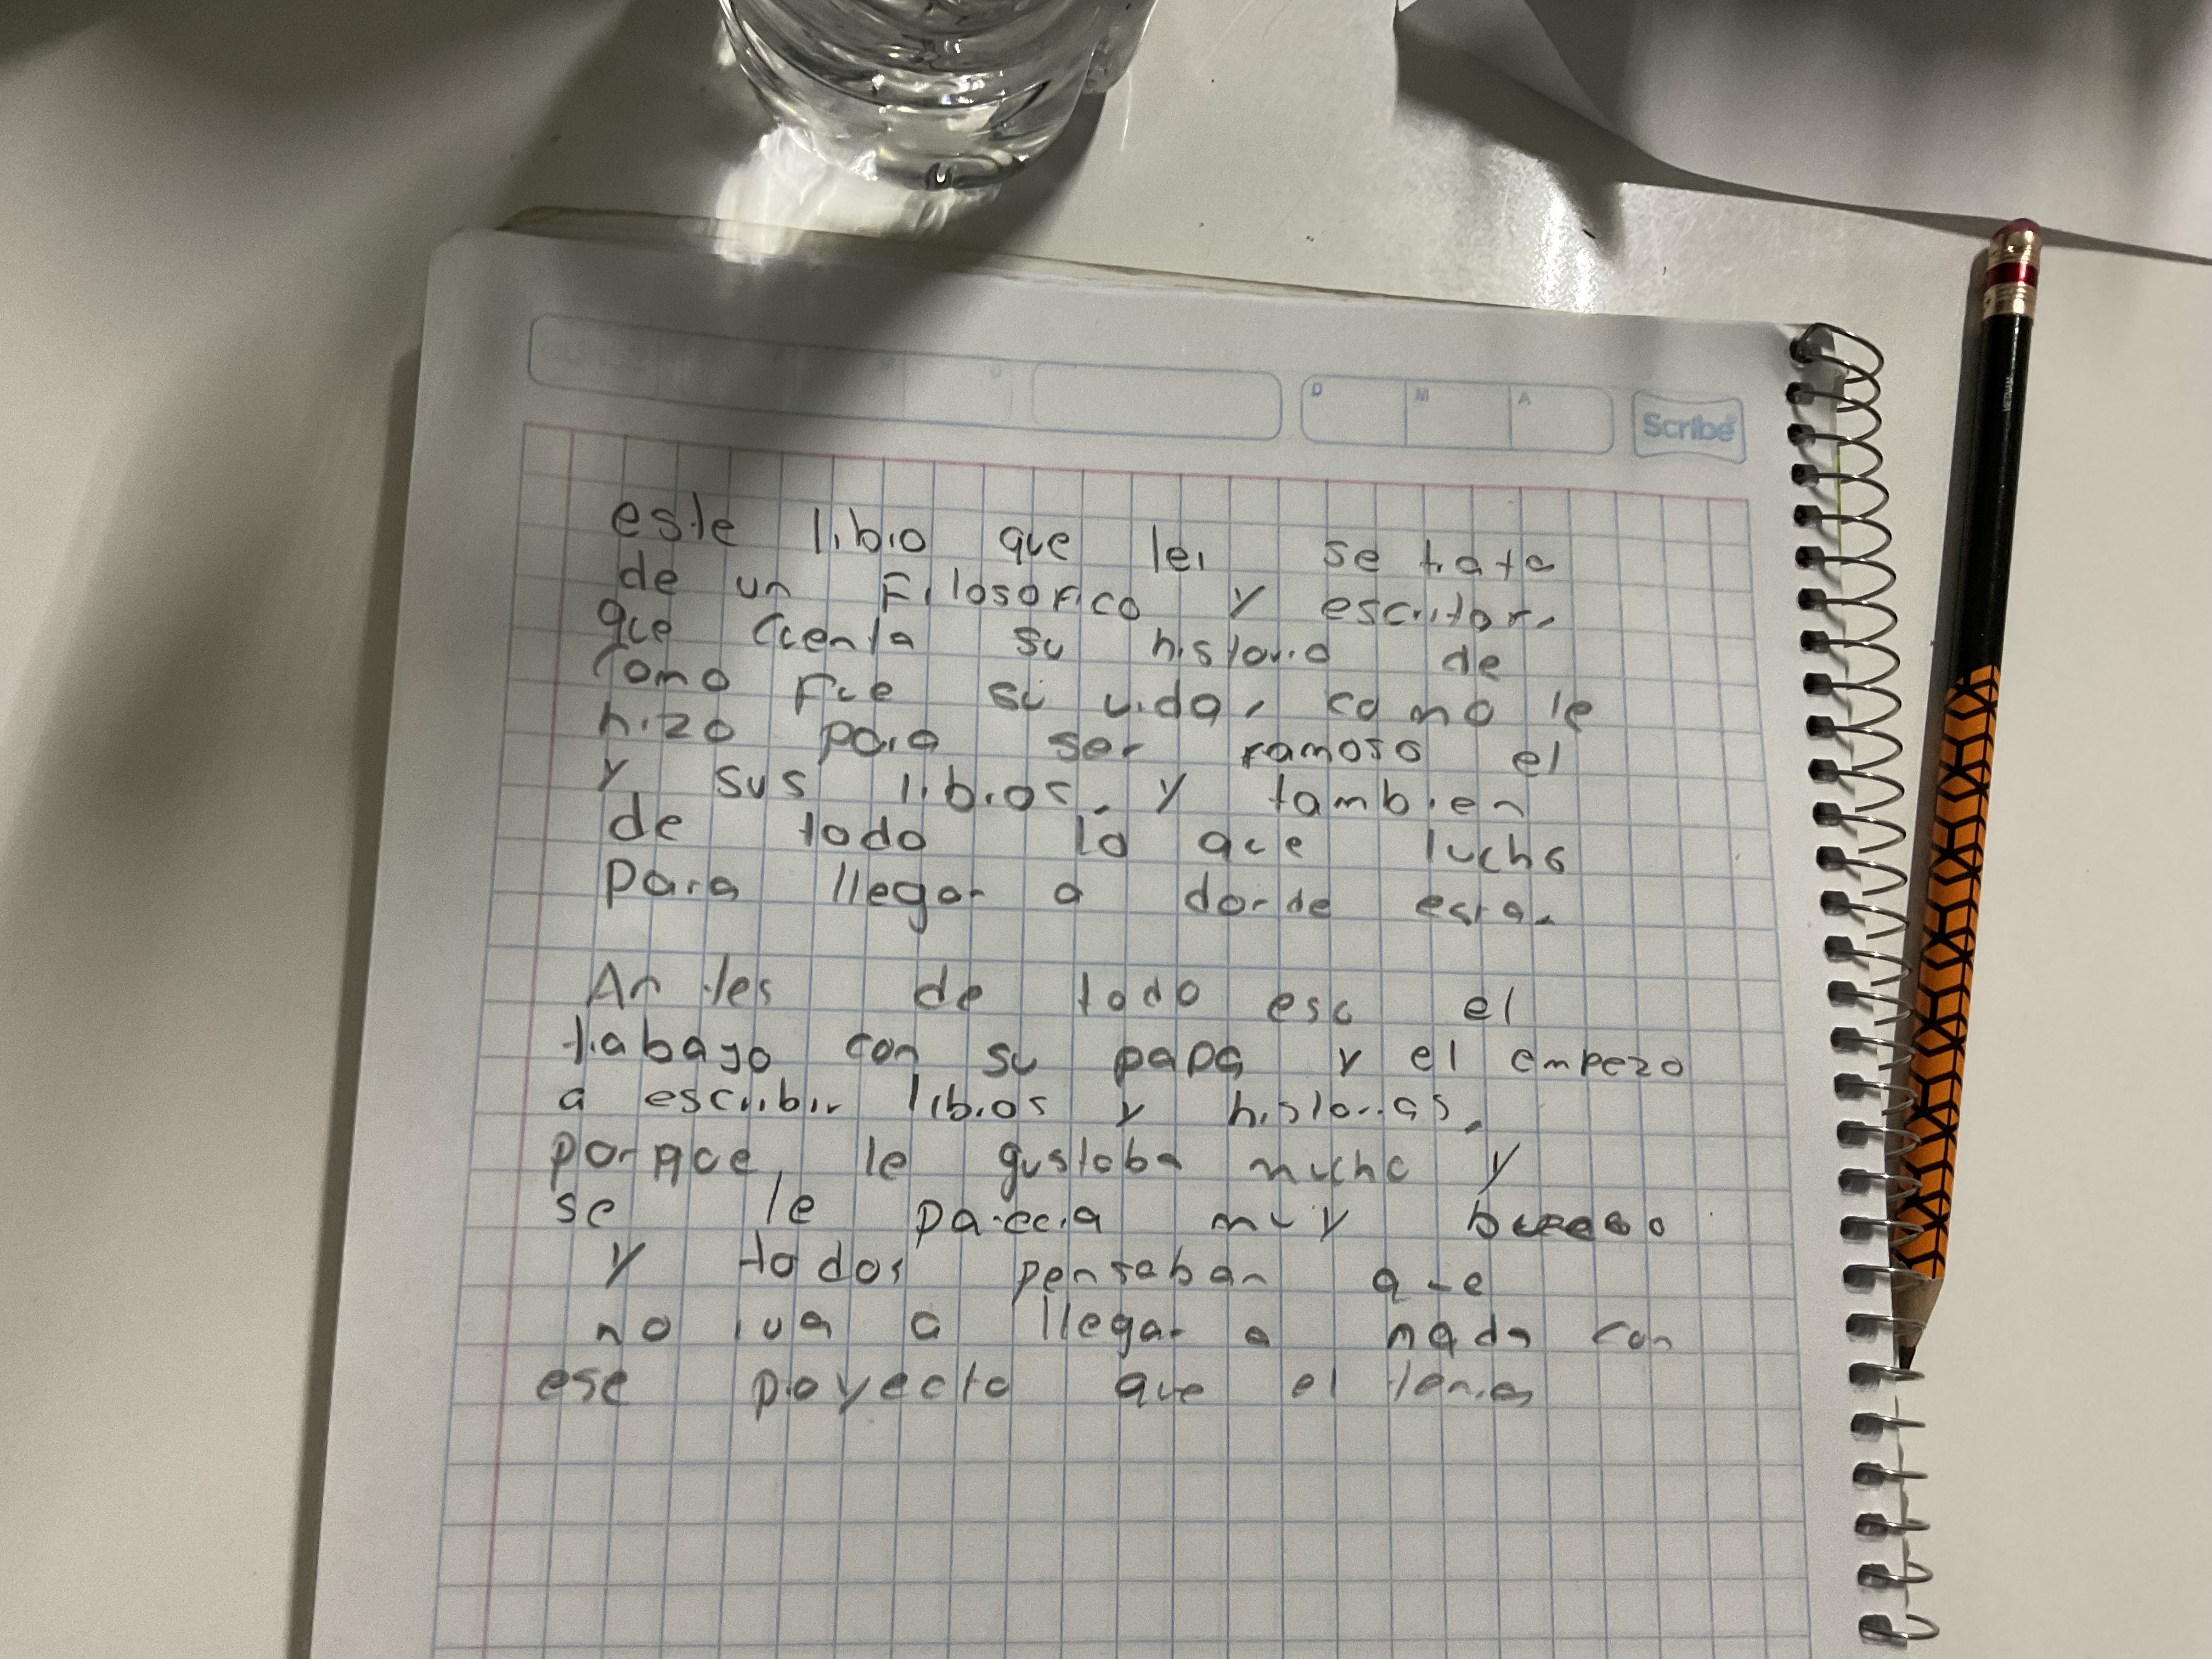 D M A Scribe
este libro que lei se trata
de un Filosofico y escritor,
que cuenta su historia de
como fue su vida, como le
hizo para ser famoso el
y sus libros, y tambien
de todo lo que lucho
para llegar a donde esta.
Antes de todo eso el
trabajo con su papa y el empezo
a escribir libros y historias,
porque, le gustaba mucho y
se le parecia muy bueno
y todos pensaban que
no iva a llegar a nada con
ese proyecto que el tenia